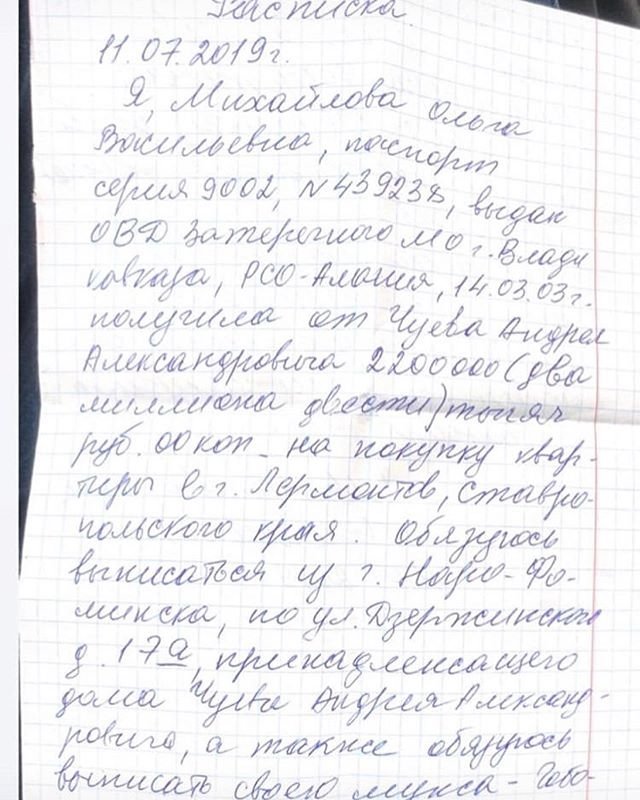 Расписка.
11.07.2019г.
Я, Михайлова Ольга
Васильевна, паспорт
серия 9002, N 439238, выдан
ОВД Затеречного МО г. Влади
кавказа, РСО-Алания, 14.03.03г.
получила от Чуева Андрея
Александровича 2200000 (два
миллиона двести) тысяч
руб. 00 коп. на покупку квар-
тиры в г. Лермонтов, Ставро-
польского края. Обязуюсь
выписаться из г. Наро-Фо-
минска, по ул. Дзержинского
д. 17а, принадлежащего
дома Чуева Андрея Александ-
ровича, а также обязуюсь
выписать своего мужа - Гово-